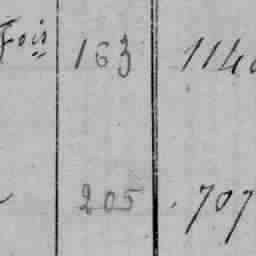 Fois 163 114
205 707